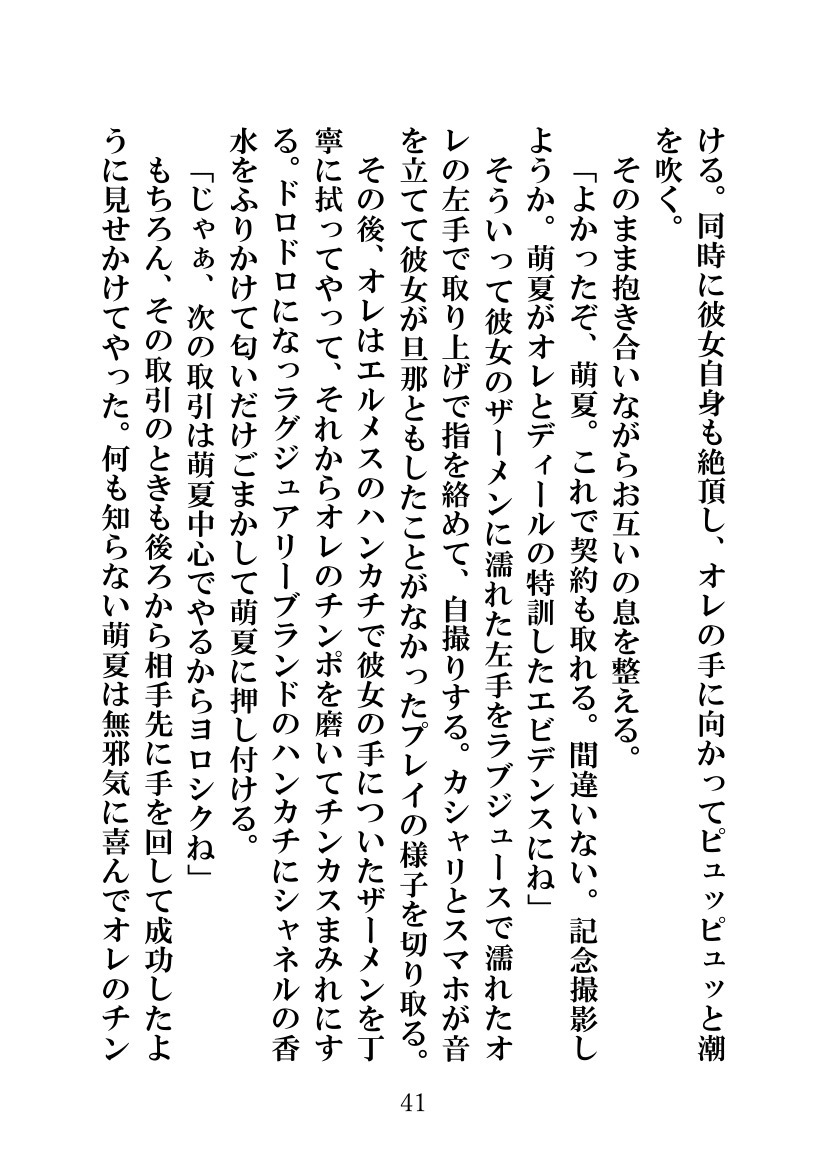 ける。同時に彼女自身も絶頂し、オレの手に向かってピュッピュッと潮
を吹く。
そのまま抱き合いながらお互いの息を整える。
「よかったぞ、萌夏。これで契約も取れる。間違いない。記念撮影し
ようか。萌夏がオレとディールの特訓したエビデンスにね」
そういって彼女のザーメンに濡れた左手をラブジュースで濡れたオ
レの左手で取り上げで指を絡めて、自撮りする。カシャリとスマホが音
を立てて彼女が旦那ともしたことがなかったプレイの様子を切り取る。
その後、オレはエルメスのハンカチで彼女の手についたザーメンを丁
寧に拭ってやって、それからオレのチンポを磨いてチンカスまみれにす
る。ドロドロになっラグジュアリーブランドのハンカチにシャネルの香
水をふりかけて匂いだけごまかして萌夏に押し付ける。
「じゃぁ、次の取引は萌夏中心でやるからヨロシクね」
もちろん、その取引のときも後ろから相手先に手を回して成功したよ
うに見せかけてやった。何も知らない萌夏は無邪気に喜んでオレのチン
41